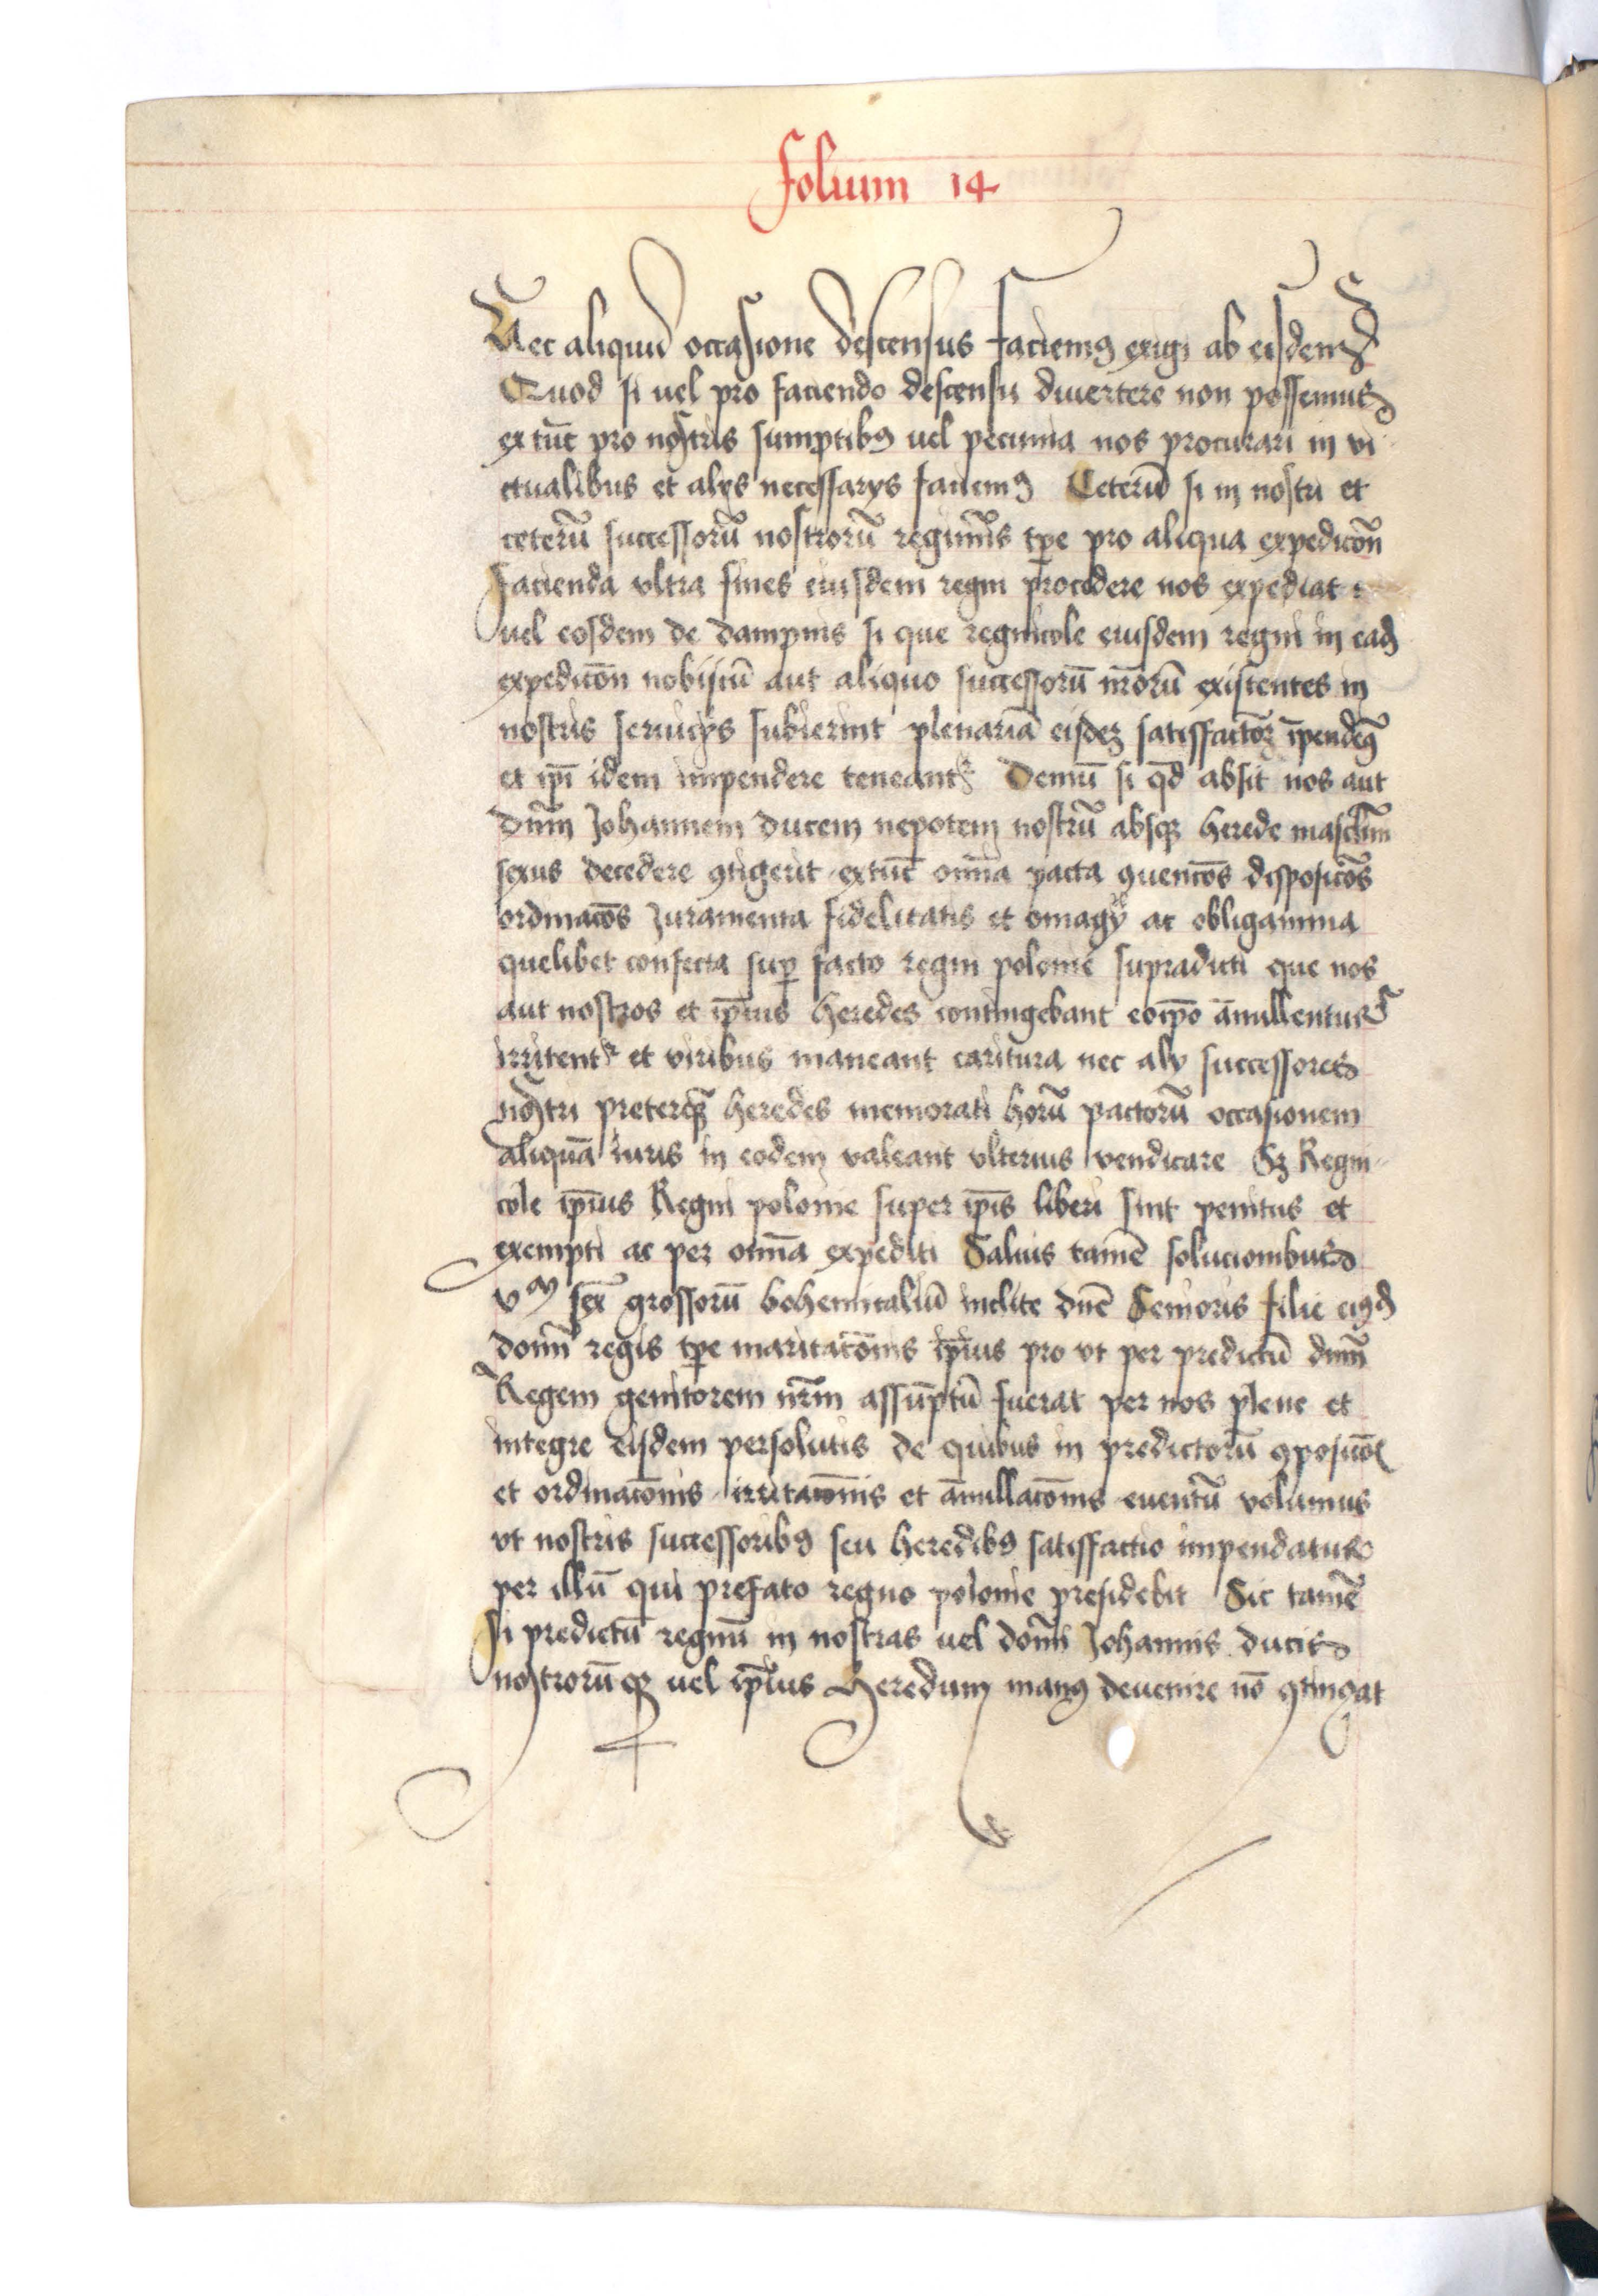 folium 14
Nec aliquid occasione descensus faciemꝰ exigi ab eisdem
Quod si uel pro faciendo descensu diuertere non possemus
ex tūc pro nostris sumptibꝰ uel pecunia nos procurari in vi
ctualibus et alys necessarys faciemꝰ Ceterū si in nostri et
ceterū successorū nostrorū regiminis tp̄e pro aliqua expedicōn
facienda vltra fines eiusdem regni procedere nos expediat
uel eosdem de dampnis si que regnicole eiusdem regni in eadꝫ
expedicōn nobiscū aut aliquo successorū nr̄orū existentes in
nostris seruicys subierint plenariā eisdeꝫ satisfactōꝫ īpendemꝰ
et ip̄i idem impendere teneantr Demū si qd̄ absit nos aut
dn̄m Johannem ducem nepotem nostrū absqꝫ herede masculini
sexus decedere ꝯtigerit extūc omīa pacta ꝯuencōes disposicōes
ordinacōes Juramenta fidelitatis et omagy ac obligamina
quelibet confecta suꝑ facto regni polonie supradicti que nos
aut nostros et ip̄ius heredes contingebant eoip̄o ānullentur
irritentr et viribus maneant caritura nec aly successores
nostri preterqꝫ heredes memorati horū pactorū occasionem
aliquā iuris in eodem valeant vlterius vendicare Sꝫ Regni
cole ip̄ius Regni polonie super ip̄is liberi sint penitus et
exempti ac per omīa expediti Saluis tamē solucionibus
vᵐ sex̄ grossorū bohemicaliū inclite dn̄e Senioris filie eiꝰdꝫ
domī regis tp̄e maritacōnis ip̄ius pro vt per predictū dn̄m
Regem genitorem nr̄m assūptū fuerat per nos plene et
integre eisdem persolutis de quibus in predictorū ꝯposicōe
et ordinacōnis irritacōnis et ānullacōnis euentū volumus
vt nostris successoribꝰ seu heredibꝰ satisfactio impendatur
per illū qui prefato regno polonie presidebit Sic tamē
si predictū regnū in nostras uel domī Johannis ducis
nostrorūqꝫ uel ip̄ius Heredum manꝰ deuenire nō ꝯtingat